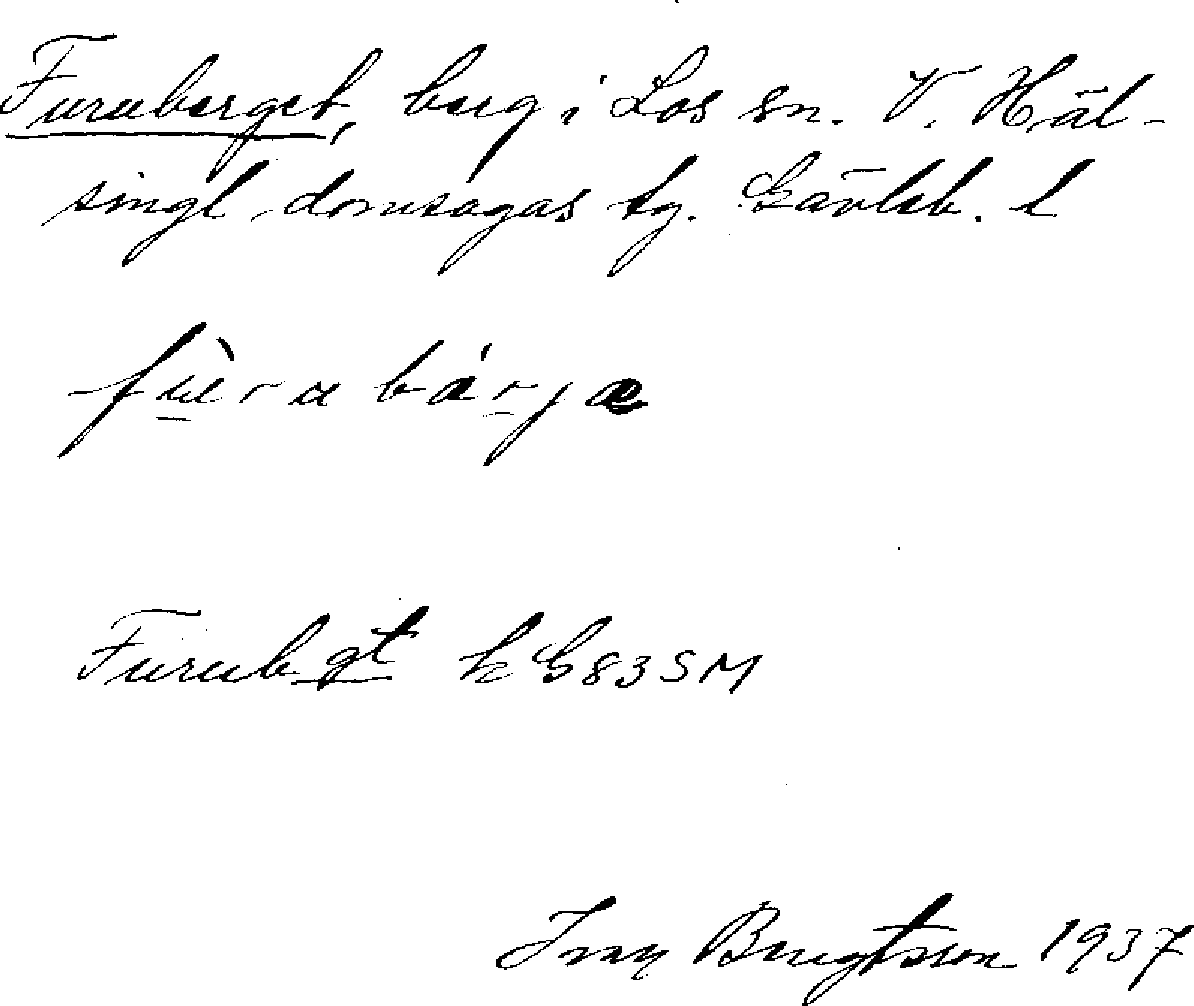 Furuberget, berg i Los sn. V. Häl-
singl. domsagas tg. Gävleb. l
fùrabárjæ
Furubgt k G83SM
Bengtsson 1937